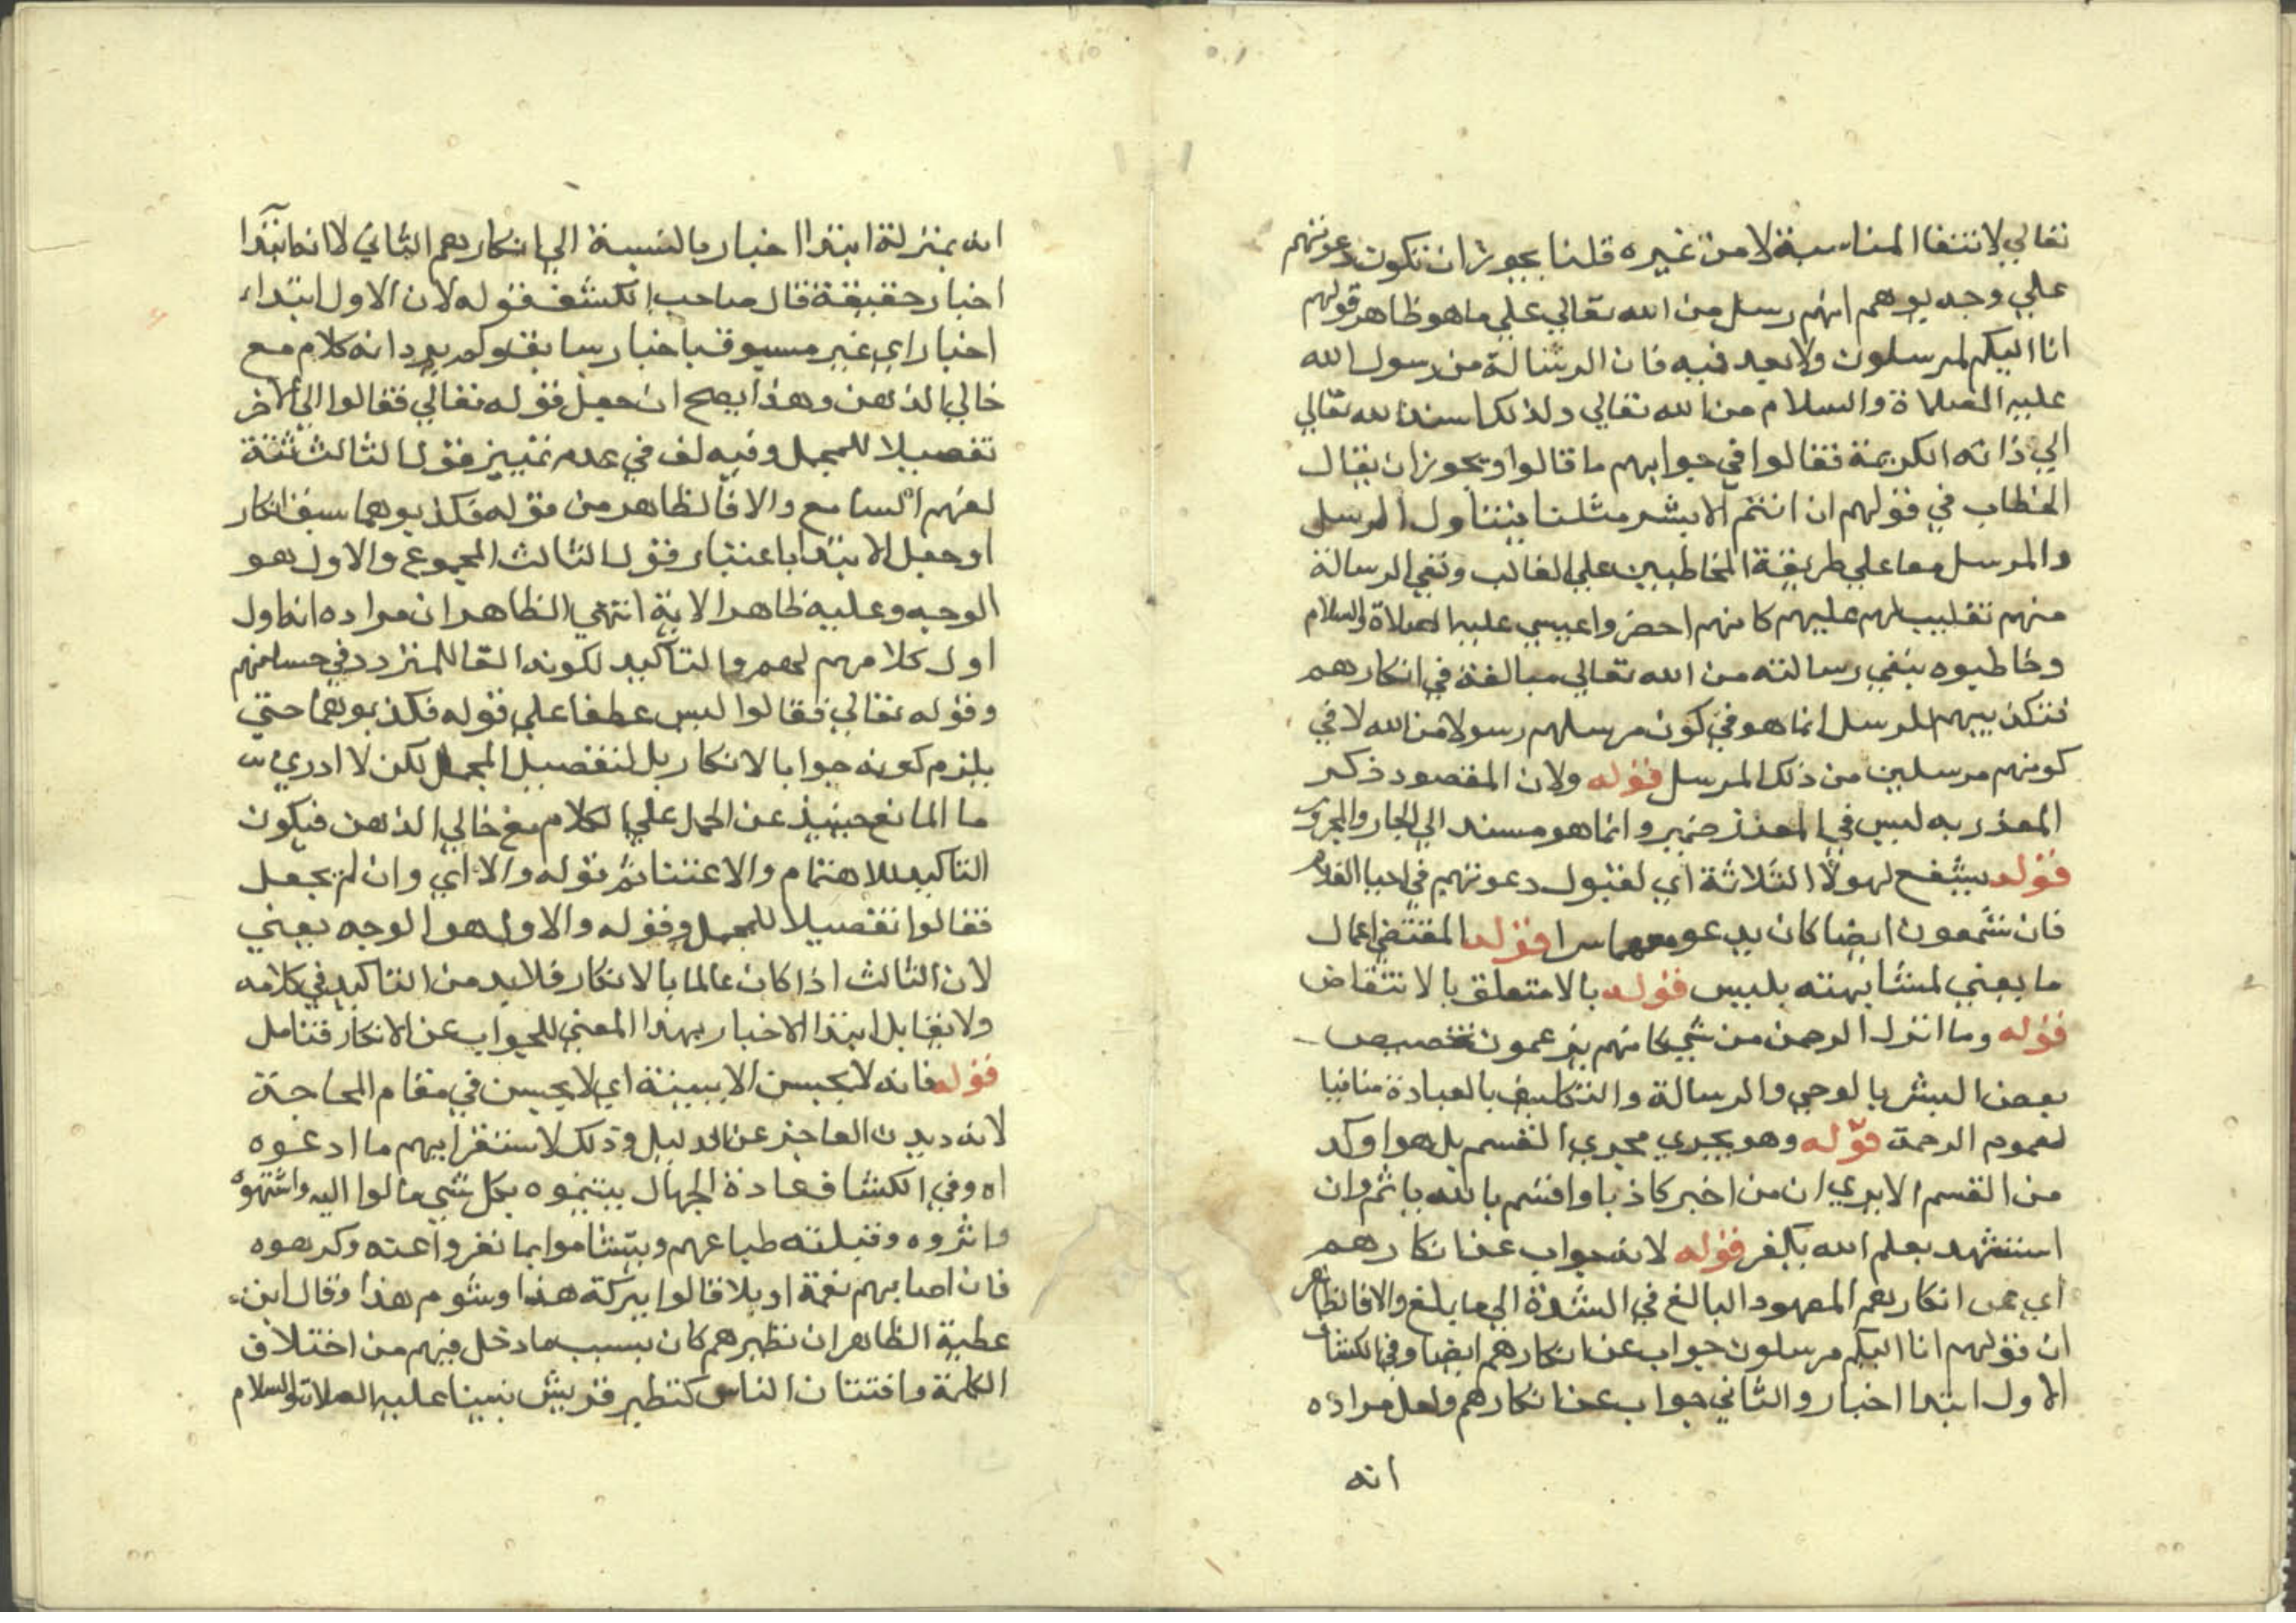 تعالي لانتفا المناسبة لا من غيره قلنا يجوز ان تكون دعوتهم
علي وجه يوهم انهم رسل من الله تعالي علي ما هو ظاهر قولهم
انا اليكم لمرسلون ولا بعد فيه فان الرسالة من رسول الله
عليه الصلاة والسلام من الله تعالي ولذلك اسند الله تعالي
الي ذاته الكريمة فقالوا في جوابهم ما قالوا ويجوز ان يقال
الخطاب في قولهم ان انتم الا بشر مثلنا يتناول الرسل
والمرسل معا علي طريقة المخاطبين علي الغالب ونفي الرسالة
منهم تغليب لهم عليهم كانهم احضروا عيسي عليه الصلاة والسلام
وخاطبوه بنفي رسالته من الله تعالي مبالغة في انكارهم
فتكذيبهم للرسل انما هو في كون مرسلهم رسولا من الله لا في
كونهم مرسلين من ذلك المرسل قوله ولان المقصود ذكر
المعزز به ليس في المعزز ضمير وانما هو مسند الي الجار والمجرور
قوله يشفع لهولا الثلاثة اي لقبول دعوتهم في احيا الغلام
فان شمعون ايضا كان يدعو معهما سرا قوله المقتضي اعمال
ما يعني لمشابهته بليس قوله بالا متعلق بالانتقاض
قوله وما انزل الرحمن من شي كانهم يزعمون تخصيص
بعض البشر بالوحي والرسالة والتكليف بالعبادة منافيا
لعموم الرحمة قوله وهو يجري مجري القسم بل هو اوكد
من القسم الا يري ان من اخبر كاذبا واقسم بالله ياثم وان
استشهد بعلم الله يكفر قوله لانه جواب عن انكارهم
اي عن انكارهم المعهود البالغ في الشدة الي ما يلغ والا فالظاهر
ان قولهم انا اليكم مرسلون جواب عن انكارهم ايضا وفي الكشاف
الاول ابتدا اخبار والثاني جواب عن انكارهم ولعل مراده
انه
انه بمنزلة ابتدا اخبار بالنسبة الي انكارهم الثاني لا انه ابتدا
اخبار حقيقة قال صاحب الكشف قوله لان الاول ابتداء
اخبار اي غير مسبوق باخبار سابق ولم يرد انه كلام مع
خالي الذهن وهذا يصح ان جعل قوله تعالي فقالوا الي الاخر
تفصيلا للمجمل وفيه لف في عدم تمييز قول الثالث ثقة
لفهم السامع والا فالظاهر من قوله فكذبوهما سبق انكار
او جعل الابتدا باعتبار قول الثالث المجموع والاول هو
الوجه وعليه ظاهر الاية انتهي الظاهر ان مراده انه اول
اول كلامهم لهم والتاكيد لكونه القا للمتردد في حسامتهم
وقوله تعالي فقالوا ليس عطفا علي قوله فكذبوهما حتي
يلزم كونه جوابا لانكار بل لتفصيل المجمل لكن لا ادري
ما المانع حينيذ عن الحمل علي الكلام مع خالي الذهن فيكون
التاكيد للاهتمام والاعتنا ثم قوله والا اي وان لم يجعل
فقالوا تفصيلا للمجمل وقوله والاول هو الوجه يعني
لان الثالث اذا كان عالما بالانكار فلا بد من التاكيد في كلامه
ولا يقابل ابتدا الاخبار بهذا المعني للجواب عن الانكار فتامل
قوله فانه لا يحسن الا ببينة اي لا يحسن في مقام المحاجة
لانه ديدن العاجز عن الدليل وذلك لاستقرابهم ما ادعوه
اه وفي الكشاف عادة الجهال يتيمنوه بكل شي مالوا اليه واشتهوه
واثروه وقبلته طباعهم ويتشاموا بما نفروا عنه وكرهوه
فان اصابهم نعمة او بلا قالوا ببركة هذا وشوم هذا وقال ابن
عطية الظاهر ان تطيرهم كان بسبب ما دخل فيهم من اختلاف
الكلمة وافتتان الناس كتطير قريش نبينا عليه الصلاة والسلام